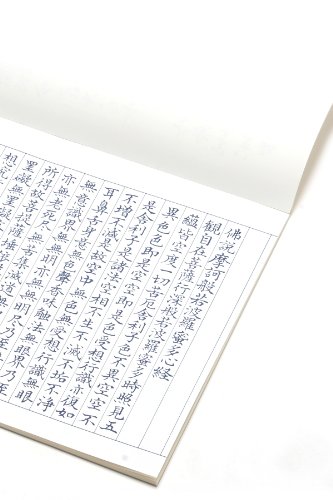 佛說摩訶般若波羅蜜多心經
觀自在菩薩行深般若波羅蜜多時照見五
蘊皆空度一切苦厄舍利子色不異空空不
異色色即是空空即是色受想行識亦復如
是舍利子是諸法空相不生不滅不垢不淨
不增不減是故空中無色無受想行識無眼
耳鼻舌身意無色聲香味觸法無眼界乃至
無意識界無無明亦無無明盡乃至
亦無老死盡無苦集滅道
所得故菩提薩埵依
罣礙無罣礙
想究